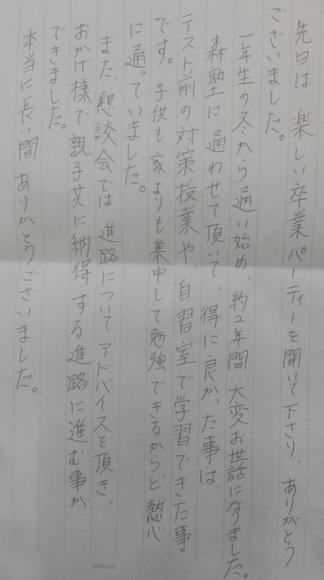 先日は、楽しい卒業パーティーを開いて下さり、ありがとう
ございました。
一年生の冬から通い始め、約2年間、大変お世話になりました。
森塾に通わせて頂いて、得に良かった事は、
テスト前の対策授業や、自習室で学習できた事
です。子供も家よりも集中して勉強できるから、と熱心
に通っていました。
また、懇談会では進路についてアドバイスを頂き、
おかげ様で親子共に納得する進路に進む事が
できました。
本当に長い間ありがとうございました。